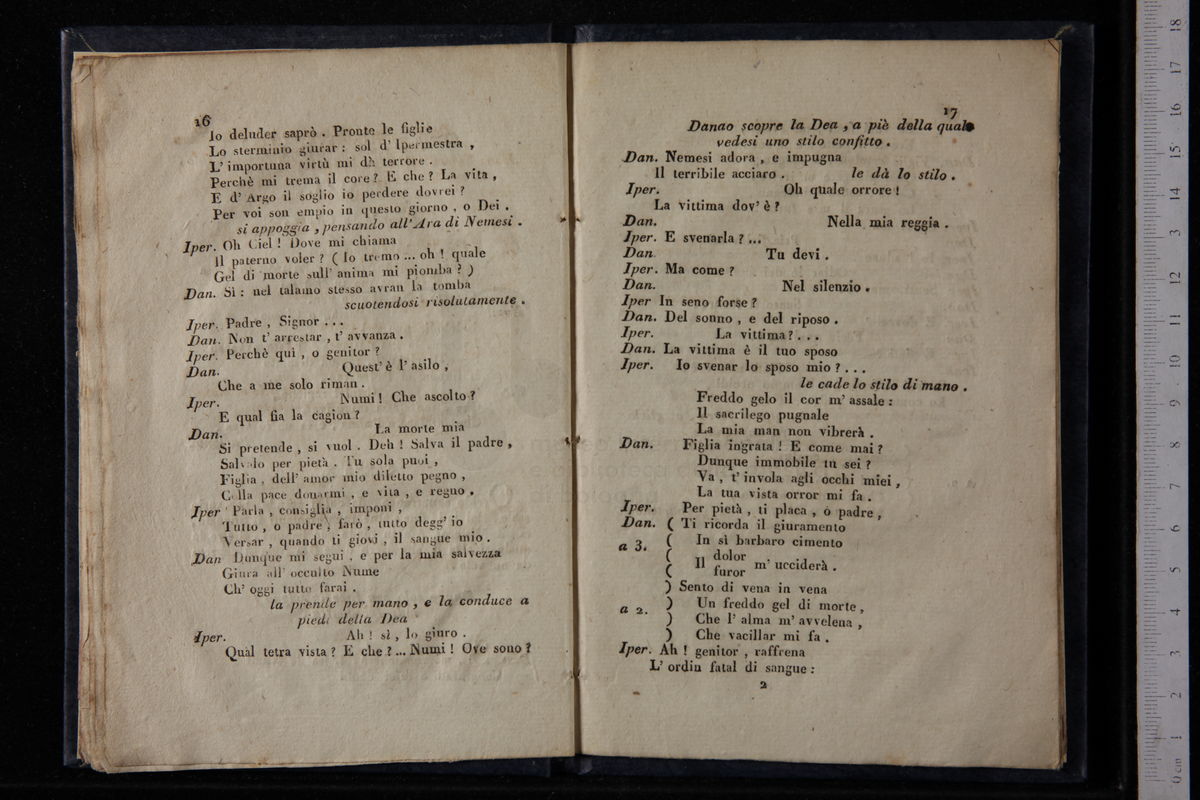 16
Io deluder saprò . Pronte le figlie
Lo sterminio giurar : sol d' Ipermestra ,
L' importuna virtù mi dà terrore .
Perchè mi trema il core ? E che ? La vita ,
E d' Argo il soglio io perdere dovrei ?
Per voi son empio in questo giorno , o Dei .
si appoggia , pensando all' Ara di Nemesi .
Iper. Oh Ciel ! Dove mi chiama
Il paterno voler ? ( Io tremo ... oh ! quale
Gel di morte sull' anima mi piomba ? )
Dan. Sì : nel talamo stesso avran la tomba
scuotendosi risolutamente .
Iper. Padre , Signor . . .
Dan. Non t' arrestar , t' avvanza .
Iper. Perchè qui , o genitor ?
Dan. Quest' è l' asilo ,
Che a me solo riman .
Iper. Numi ! Che ascolto ?
E qual fia la cagion ?
Dan. La morte mia
Si pretende , si vuol . Deh ! Salva il padre ,
Salvalo per pietà . Tu sola puoi ,
Figlia , dell' amor mio diletto pegno ,
Colla pace donarmi , e vita , e regno .
Iper Parla , consiglia , imponi ,
Tutto , o padre , farò , tutto degg' io
Versar , quando ti giovi , il sangue mio .
Dan Dunque mi segui , e per la mia salvezza
Giura all' occulto Nume
Ch' oggi tutto farai .
la prende per mano , e la conduce a
piedi della Dea
Iper. Ah ! sì , lo giuro .
Qual tetra vista ? E che ? ... Numi ! Ove sono ?
17
Danao scopre la Dea , a piè della quale
vedesi uno stilo confitto .
Dan. Nemesi adora , e impugna
Il terribile acciaro . le dà lo stilo .
Iper. Oh quale orrore !
La vittima dov' è ?
Dan. Nella mia reggia .
Iper. E svenarla ? ...
Dan Tu devi .
Iper. Ma come ?
Dan. Nel silenzio .
Iper In seno forse ?
Dan. Del sonno , e del riposo .
Iper. La vittima ? . . .
Dan. La vittima è il tuo sposo
Iper. Io svenar lo sposo mio ? . . .
le cade lo stilo di mano .
Freddo gelo il cor m' assale :
Il sacrilego pugnale
La mia man non vibrerà .
Dan. Figlia ingrata ! E come mai ?
Dunque immobile tu sei ?
Va , t' invola agli occhi miei ,
La tua vista orror mi fa .
Iper. Per pietà , ti placa , o padre ,
Dan. ( Ti ricorda il giuramento
a 3. ( In sì barbaro cimento
( Il dolor
( furor m' ucciderà .
) Sento di vena in vena
a 2. ) Un freddo gel di morte ,
) Che l' alma m' avvelena ,
) Che vacillar mi fa .
Iper. Ah ! genitor , raffrena
L' ordin fatal di sangue :
2
0 cm 1 2 3 4 5 6 7 8 9 10 11 12 13 14 15 16 17 18